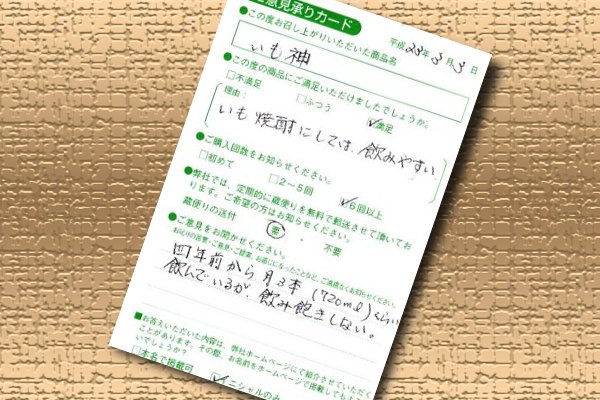 ご意見承りカード
平成23年3月3日
●この度お召し上がりいただいた商品名
いも神
●この度の商品にご満足いただけましたでしょうか。
□不満足 □ふつう ☑満足
理由：
いも焼酎にしては、飲みやすい
●ご購入回数をお知らせください。
□初めて □2～5回 ☑6回以上
●弊社では、定期的に蔵便りを無料で郵送させて頂いてお
ります。ご希望の方はお知らせください。
蔵便りの送付 要 ・ 不要
●ご意見をお聞かせください。
お気に召さないことなど、ご遠慮なくお知らせください。
四年前から月3本(720ml)くらい
飲んでいるが、飲み飽きしない。
■お答えいただいた内容は、弊社ホームページにて紹介させていただく
ことがあります。その際、お名前をホームページで掲載しても
いでしょうか？
□本名で掲載可 ☑イニシャルのみ